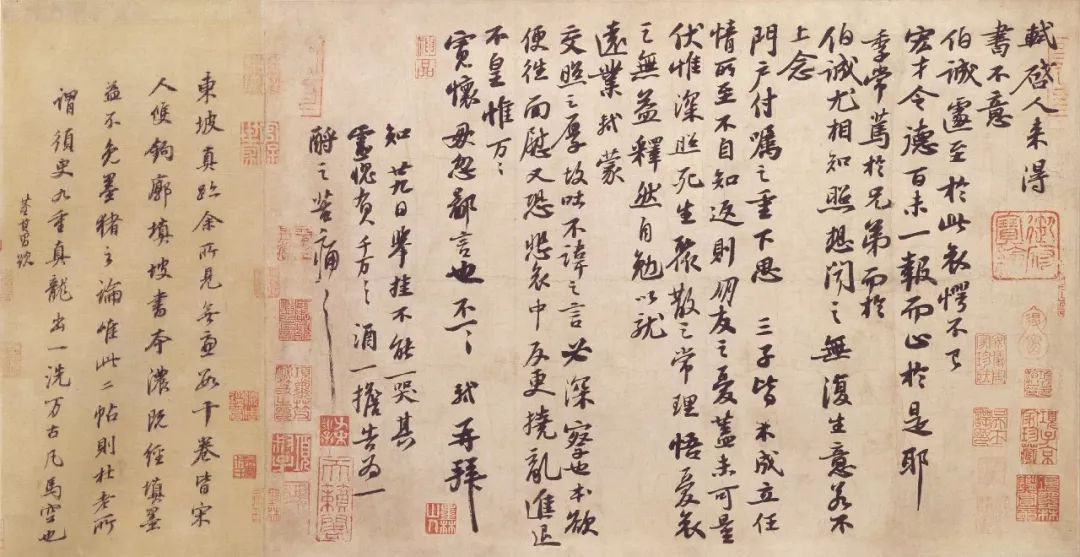 轼启人来得
书不意
伯诚遽至于此哀愕不已
宏才令德百未一报而止于是耶
季常笃于兄弟而于
伯诚尤相知照想闻之无复生意若不
上念
门户付嘱之重下思三子皆未成立任
情所至不自知返则朋友之忧盖未可量
伏惟深照死生聚散之常理悟忧哀
之无益释然自勉以就
远业轼蒙
交照之厚故吐不讳之言必深察也本欲
便往面慰又恐悲哀中反更挠乱进退
不皇惟万万
宽怀毋忽鄙言也不一一轼再拜
知廿九日举挂不能一哭其
灵愧负千万千万酒一担告为一
酹之苦痛苦痛
東坡真跡余所見無慮數十卷皆宋
人雙鉤廓填坡書本濃既經填墨
益不免墨豬之論惟此二帖則杜老所
謂須臾九重真龍出一洗萬古凡馬空也
董其昌跋